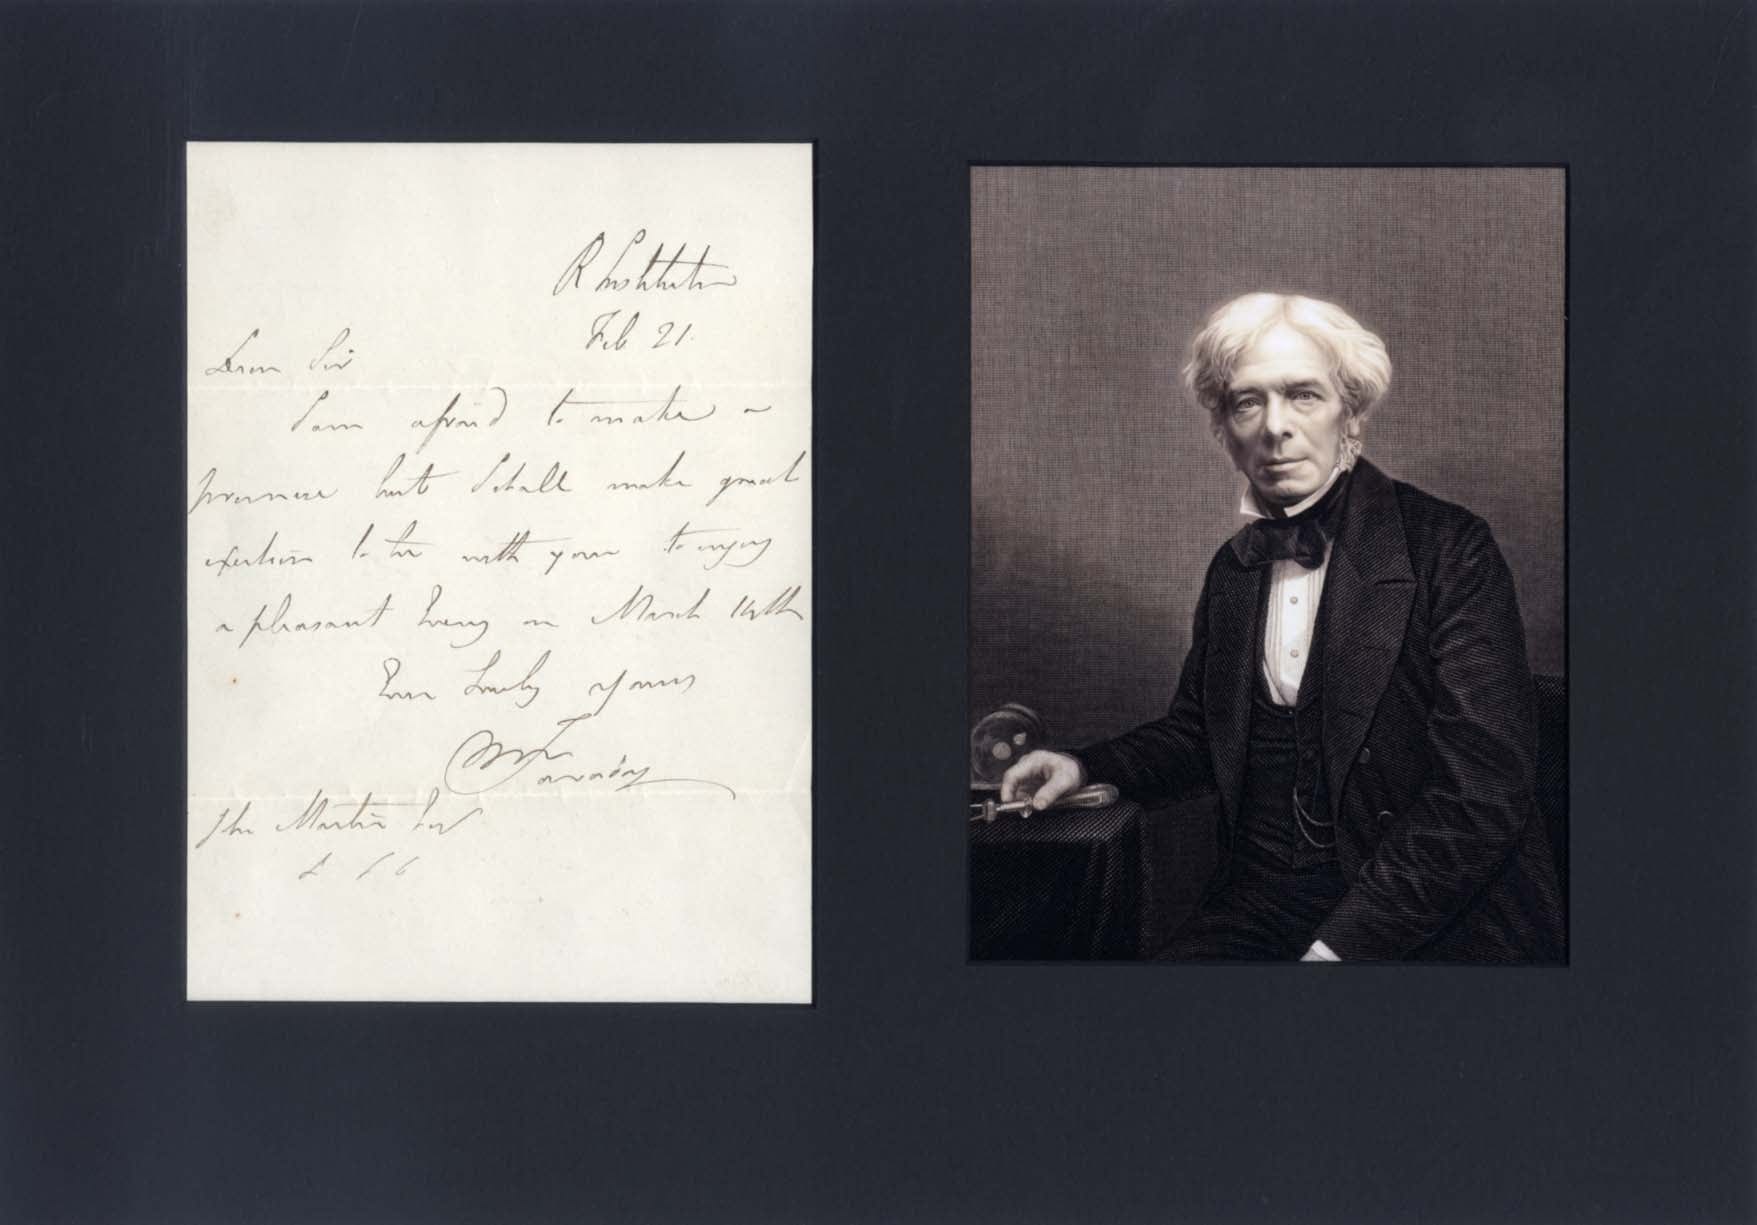 R Institution
Feb 21.
Dear Sir
I am afraid to make a
promise but I shall make great
exertion to be with you to enjoy
a pleasant Eveng on March 14th
Ever Truly yours
M Faraday
Jhn Martin Esq
&c &c &c